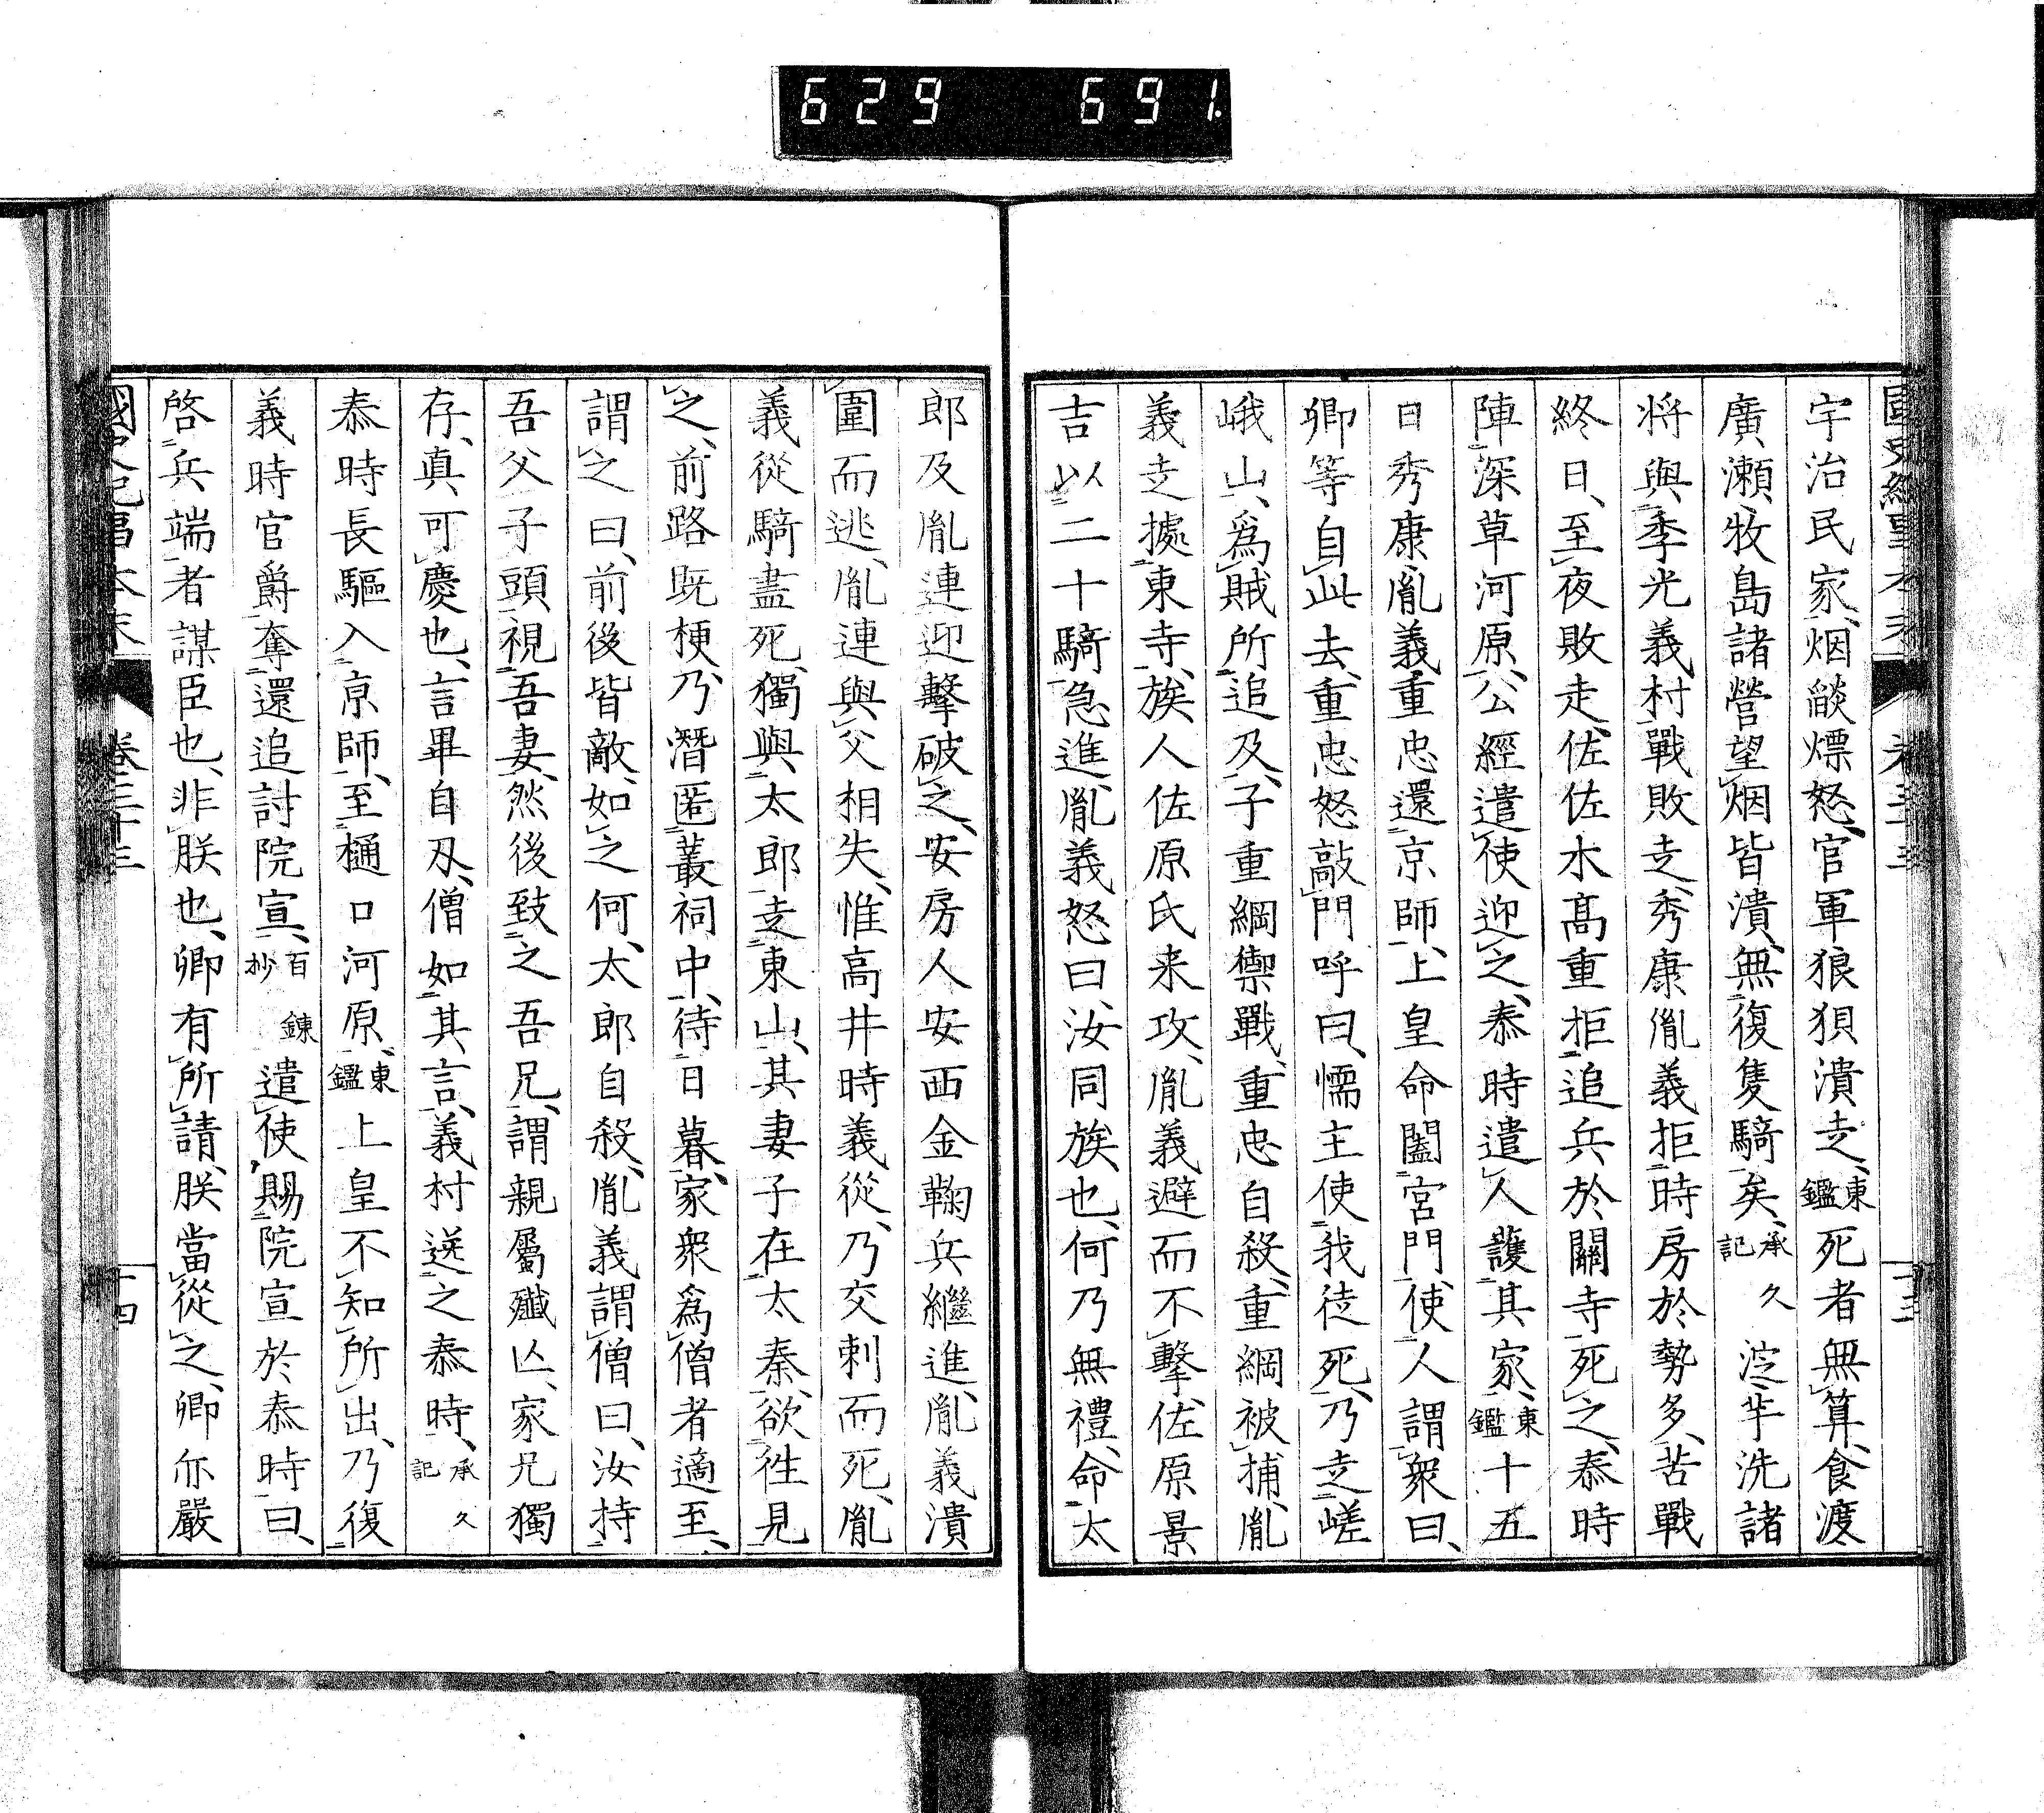 629 691.
宇治民家、烟燄熛怒、官軍狼狽潰走、東鑑死者無算、食渡
廣瀬、牧島諸營望烟皆潰、無復隻騎矣、承久記淀芋洗諸
将與季光義村戰敗走、秀康胤義拒時房於勢多、苦戰
終日、至夜敗走、佐佐木高重拒追兵於關寺死之、泰時
陣深草河原、公經遣使迎之、泰時遣人護其家、東鑑十五
日秀康胤義重忠還京師、上皇命闔宮門、使人謂衆曰、
卿等自此去、重忠怒敲門呼曰、懦主使我徒死、乃走嵯
峨山、爲賊所追及、子重綱禦戰、重忠自殺、重綱被捕、胤
義走據東寺、族人佐原氏来攻、胤義避而不擊、佐原景
吉以二十騎急進、胤義怒曰、汝同族也、何乃無禮、命太
郎及胤連迎擊破之、安房人安西金鞠兵繼進、胤義潰
圍而逃、胤連與父相失、惟高井時義從、乃交刺而死、胤
義從騎盡死、獨與太郎走東山、其妻子在太秦、欲往見
之、前路既梗、乃潛匿叢祠中、待日暮、家衆爲僧者適至、
謂之曰、前後皆敵、如之何、太郎自殺、胤義謂僧曰、汝持
吾父子頭視吾妻、然後致之吾兄、謂親屬殲亾、家兄獨
存、真可慶也、言畢自刄、僧如其言、義村送之泰時、承久記
泰時長驅入京師、至樋口河原、東鑑上皇不知所出、乃復
義時官爵奪還追討院宣、百鍊抄遣使賜院宣於泰時曰、
啓兵端者謀臣也、非朕也、卿有所請、朕當從之、卿亦嚴
國史紀事本末 卷三十三 十四